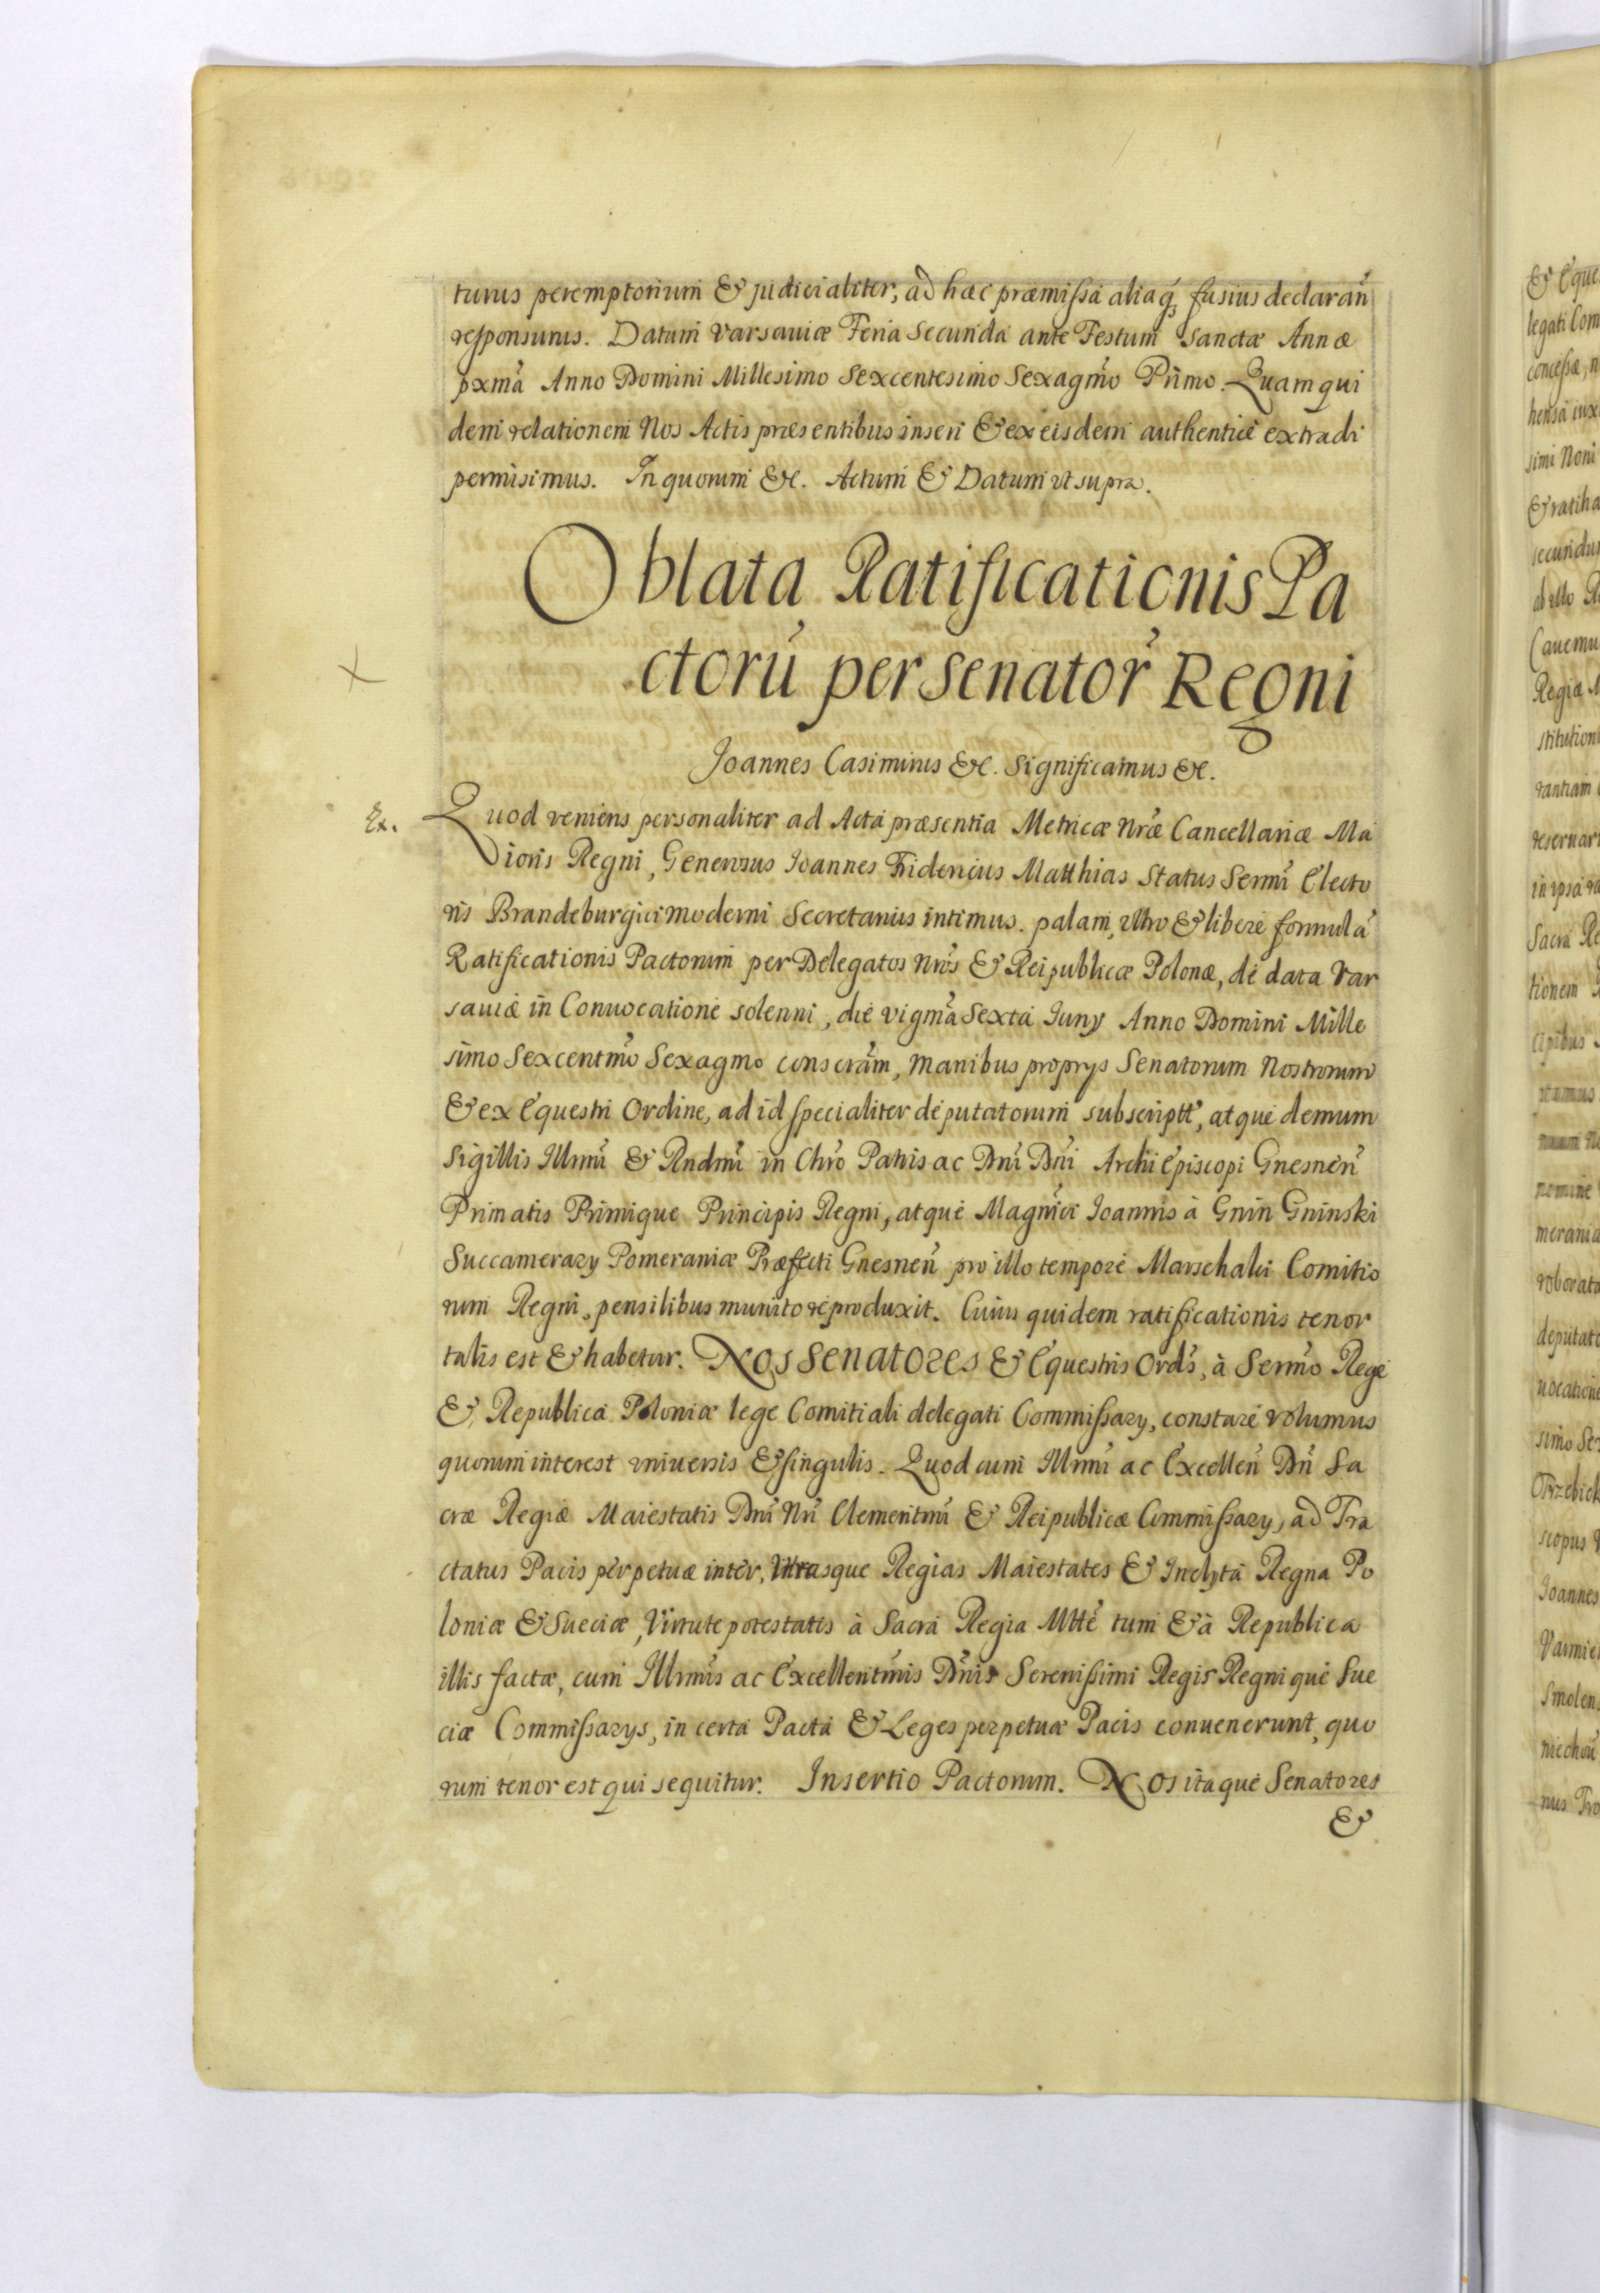 turus peremptorium & judicialiter, ad haec praemissa aliaq₃ fusius declarañ
responsurus. Datum Varsaviæ Feria Secunda ante Festum Sanctæ Annæ
pxm̃a Anno Domini Millesimo Sexcentesimo Sexagm̃o Primo. Quam qui
dem relationem Nos Actis præsentibus inseri & ex eisdem authentice extradi
permisimus. In quorum &c. Actum & Datum ut supra.
Oblata Ratificationis Pa
ctorũ per Senator̃ Regni
Joannes Casimirus &c. Significamus &c.
Ex. Quod veniens personaliter ad Acta præsentia Metricæ Nr̃æ Cancellariæ Ma
ioris Regni, Generosus Ioannes Fridericus Matthias Status Serm̃i Electo
ris Brandeburgici moderni Secretarius intimus. palam, vltro & libere formulã
Ratificationis Pactorum per Delegatos Nr̃os & Reipublicæ Polonæ, de data Var
saviæ in Conuocatione solenni, die vigm̃a Sexta Iuny Anno Domini Mille
simo Sexcentm̃o Sexagmo conscrãm, Manibus proprys Senatorum Nostrorum
& ex Equestri Ordine, ad id specialiter deputatorum subscriptt̃, atque demum
Sigillis Illrmi & Rndm̃i in Chr̃o Patris ac Dnĩ Dnĩ Archi Episcopi Gnesneñ
Primatis Primique Principis Regni, atque Magnĩci Ioannis à Gnin Gninski
Succamerary Pomeraniæ Præfecti Gnesneñ pro illo tempore Marschalci Comitio
rum Regni, pensilibus munito reproduxit. Cuius quidem ratificationis tenor
talis est & habetur. Nos Senatores & Equestris Ord̃s, à Serm̃o Rege
& Republica Poloniæ lege Comitiali delegati Commissary, constare volumus
quorum interest vniuersis & singulis. Quod cum Illrm̃i ac Excelleñ Dñi Sa
cræ Regiæ Maiestatis Dnĩ Nr̃i Clementm̃i & Reipublicæ Commissary, ad Tra
ctatus Pacis perpetuæ inter, Vtrasque Regias Maiestates & Inclyta Regna Po
loniæ & Sueciæ, Virtute potestatis à Sacra Regia Mttẽ tum & à Republica
illis factæ, cum Illrm̃is ac Excellentm̃is Dñis Serenissimi Regis Regnique Sue
ciæ Commissarys, in certa Pacta & Leges perpetuæ Pacis conuenerunt, quo
rum tenor est qui sequitur. Insertio Pactorum. Nos itaque Senatores
&